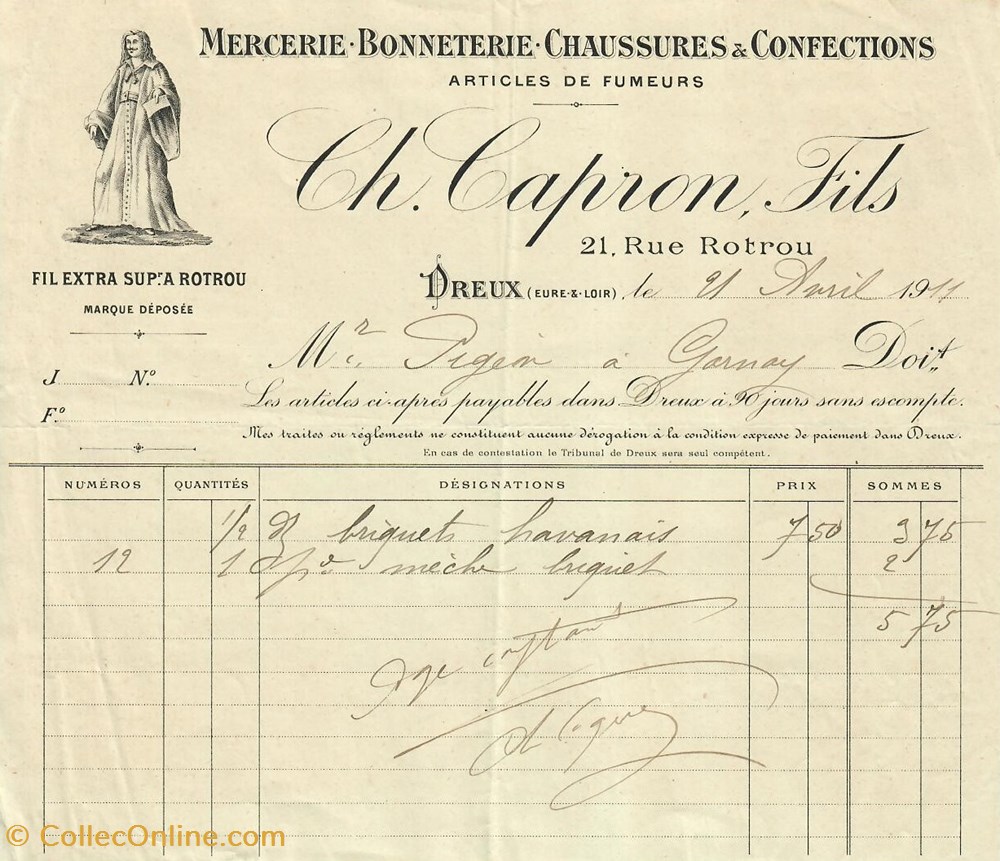 MERCERIE · BONNETERIE · CHAUSSURES & CONFECTIONS
ARTICLES DE FUMEURS
Ch. Capron, Fils
21, Rue Rotrou
FIL EXTRA SUP.r A ROTROU
MARQUE DÉPOSÉE
DREUX (EURE-&-LOIR) le 21 Avril 1911
Mr Pigeon à Garnay Doit
J No
Fo
Les articles ci-après payables dans Dreux à 90 jours sans escompte.
Mes traites ou réglements ne constituent aucune dérogation à la condition expresse de paiement dans Dreux.
En cas de contestation le Tribunal de Dreux sera seul compétent.
NUMÉROS QUANTITÉS DÉSIGNATIONS PRIX SOMMES
1/2 briquets havanais 7 50 3 75
12 1 mèche briquet 2
5 75
© CollecOnline.com